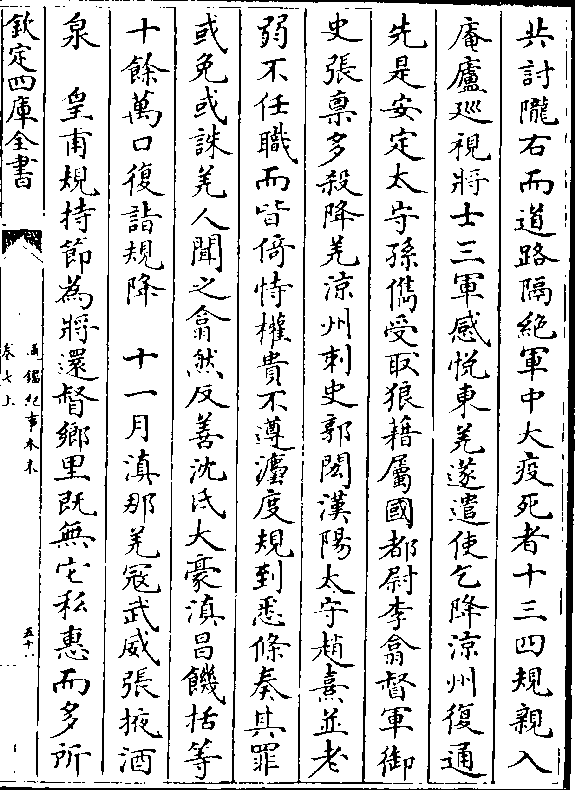 共討隴右而道路隔絶軍中大疫死者十三四規親入
庵廬廵視將士三軍感悅東羌遂遣使乞降涼州復通
先是安定太守孫儁受取狼藉屬國都尉李翕督軍御
史張稟多殺降羌涼州刺史郭閎漢陽太守趙熹並老
弱不任職而皆倚恃權貴不遵灋度規到悉條奏其罪
或免或誅羌人聞之翕然反善沈氐大豪滇昌饑恬等
十餘萬口復詣規降　十一月滇那羌寇武威張掖酒
泉　皇甫規持節為將還督鄉里既無它私惠而多所
欽定四庫全書
通鑑紀事本末
卷七上